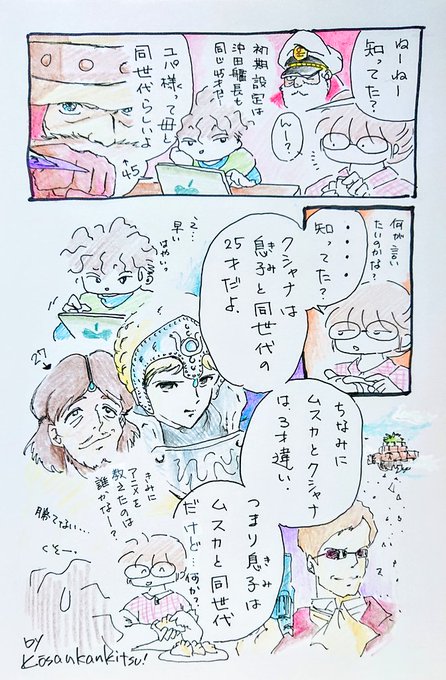 ねーねー
知ってた?
初期設定は
沖田艦長も
同じ45才だ
んー?
ユパ様って母と
同世代らしいよ
↑45
何が言い
たいのかな?
・・・・
知ってた?
クシャナは
息子と同世代の
きみ
25才だよ。
え…
早い
はやい。
27
ちなみに
ムスカとクシャナ
は、3才違い。
きみに
アニメを
教えたのは
誰かなー?
つまり息子は
きみ
ムスカと同世代
だけど…何か?
勝てない…
くそー。
by
Kōsankankitsu!